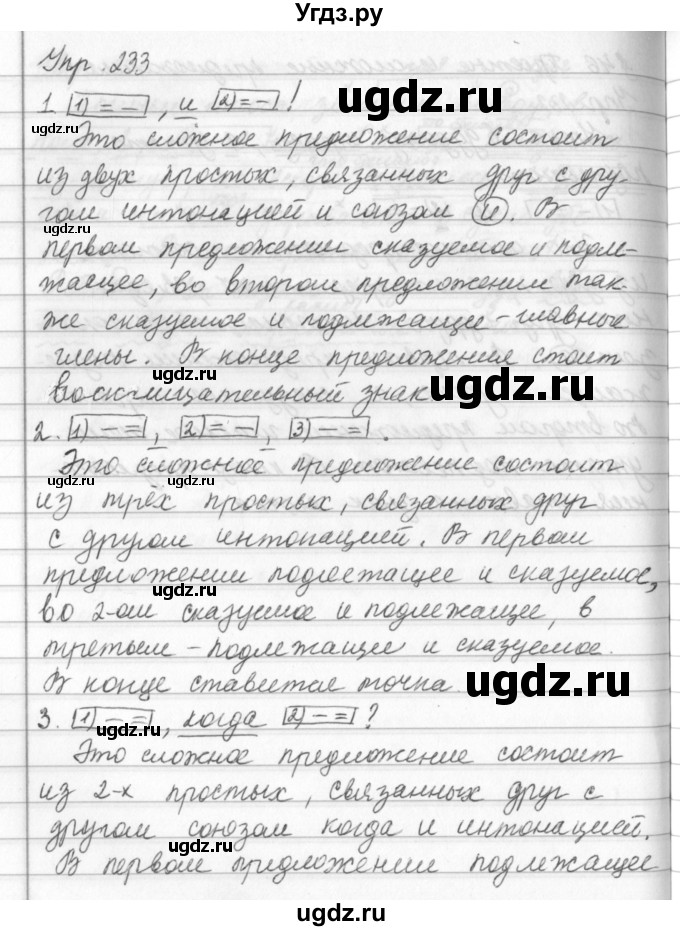 Угдз.ру
Упр. 233
1. [1) = –], и [2) = –]!
ugdz.ru
ugdz.ru
ugdz.ru
Это сложное предложение состоит
из двух простых, связанных друг с дру-
гом интонацией и союзом и. В
первом предложении сказуемое и подле-
жащее, во втором предложении так-
же сказуемое и подлежащее - главные
члены. В конце предложения стоит
ugdz.ru
ugdz.ru
восклицательный знак
2. [1) – =], [2) = –], [3) – =].
ugdz.ru
Это сложное предложение состоит
из трёх простых, связанных друг
с другом интонацией. В первом
предложении подлежащее и сказуемое,
ugdz.ru
во 2-ом сказуемое и подлежащее, в
третьем - подлежащее и сказуемое.
В конце ставится точка.
ugdz.ru
3. [1) – =], когда [2) – =]?
ugdz.ru
ugdz.ru
Это сложное предложение состоит
из 2-х простых, связанных друг с
другом союзом когда и интонацией.
В первом предложении подлежащее
ugdz.ru